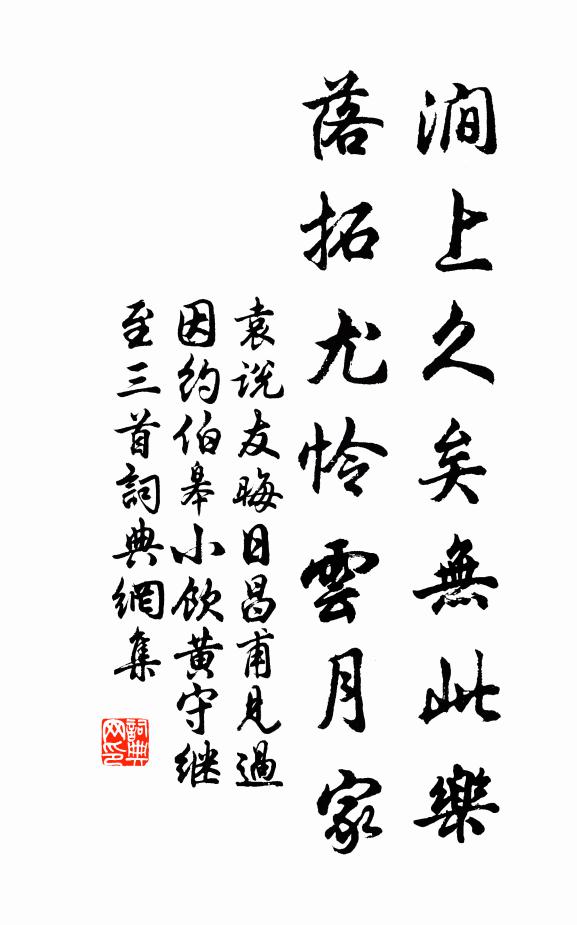 澗上久矣無此樂
落拓尤怜雲月家
袁说友晦日昌甫見過
因約伯皋小飲黄守继
至三首詞典網集
詞典
网印